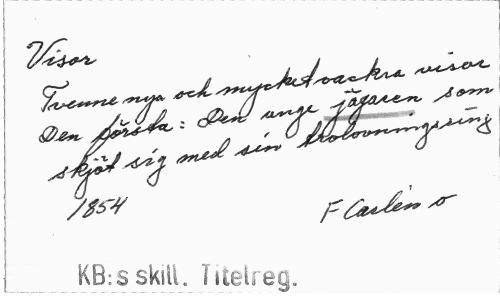 Visor
Tvenne nya och mycket vackra visor
Den första: Den unge jägaren som
skjöt sig med sin trolovningsring
1854 F Carlén o
KB:s skill. Titelreg.